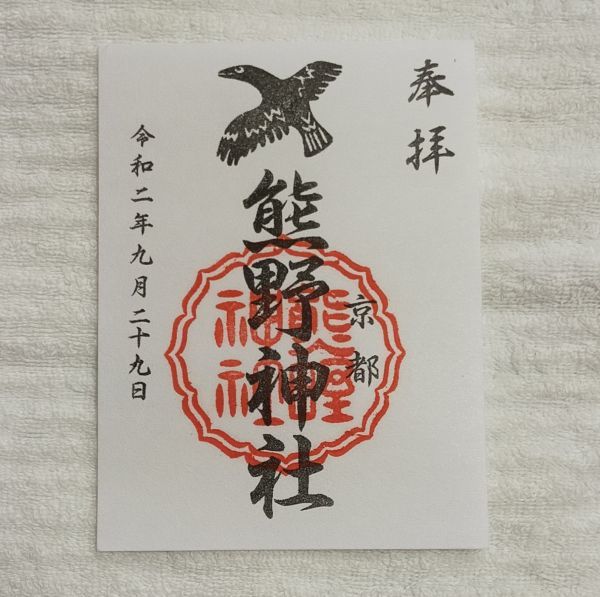 奉拝
京都
熊野神社
熊野神社
令和二年九月二十九日